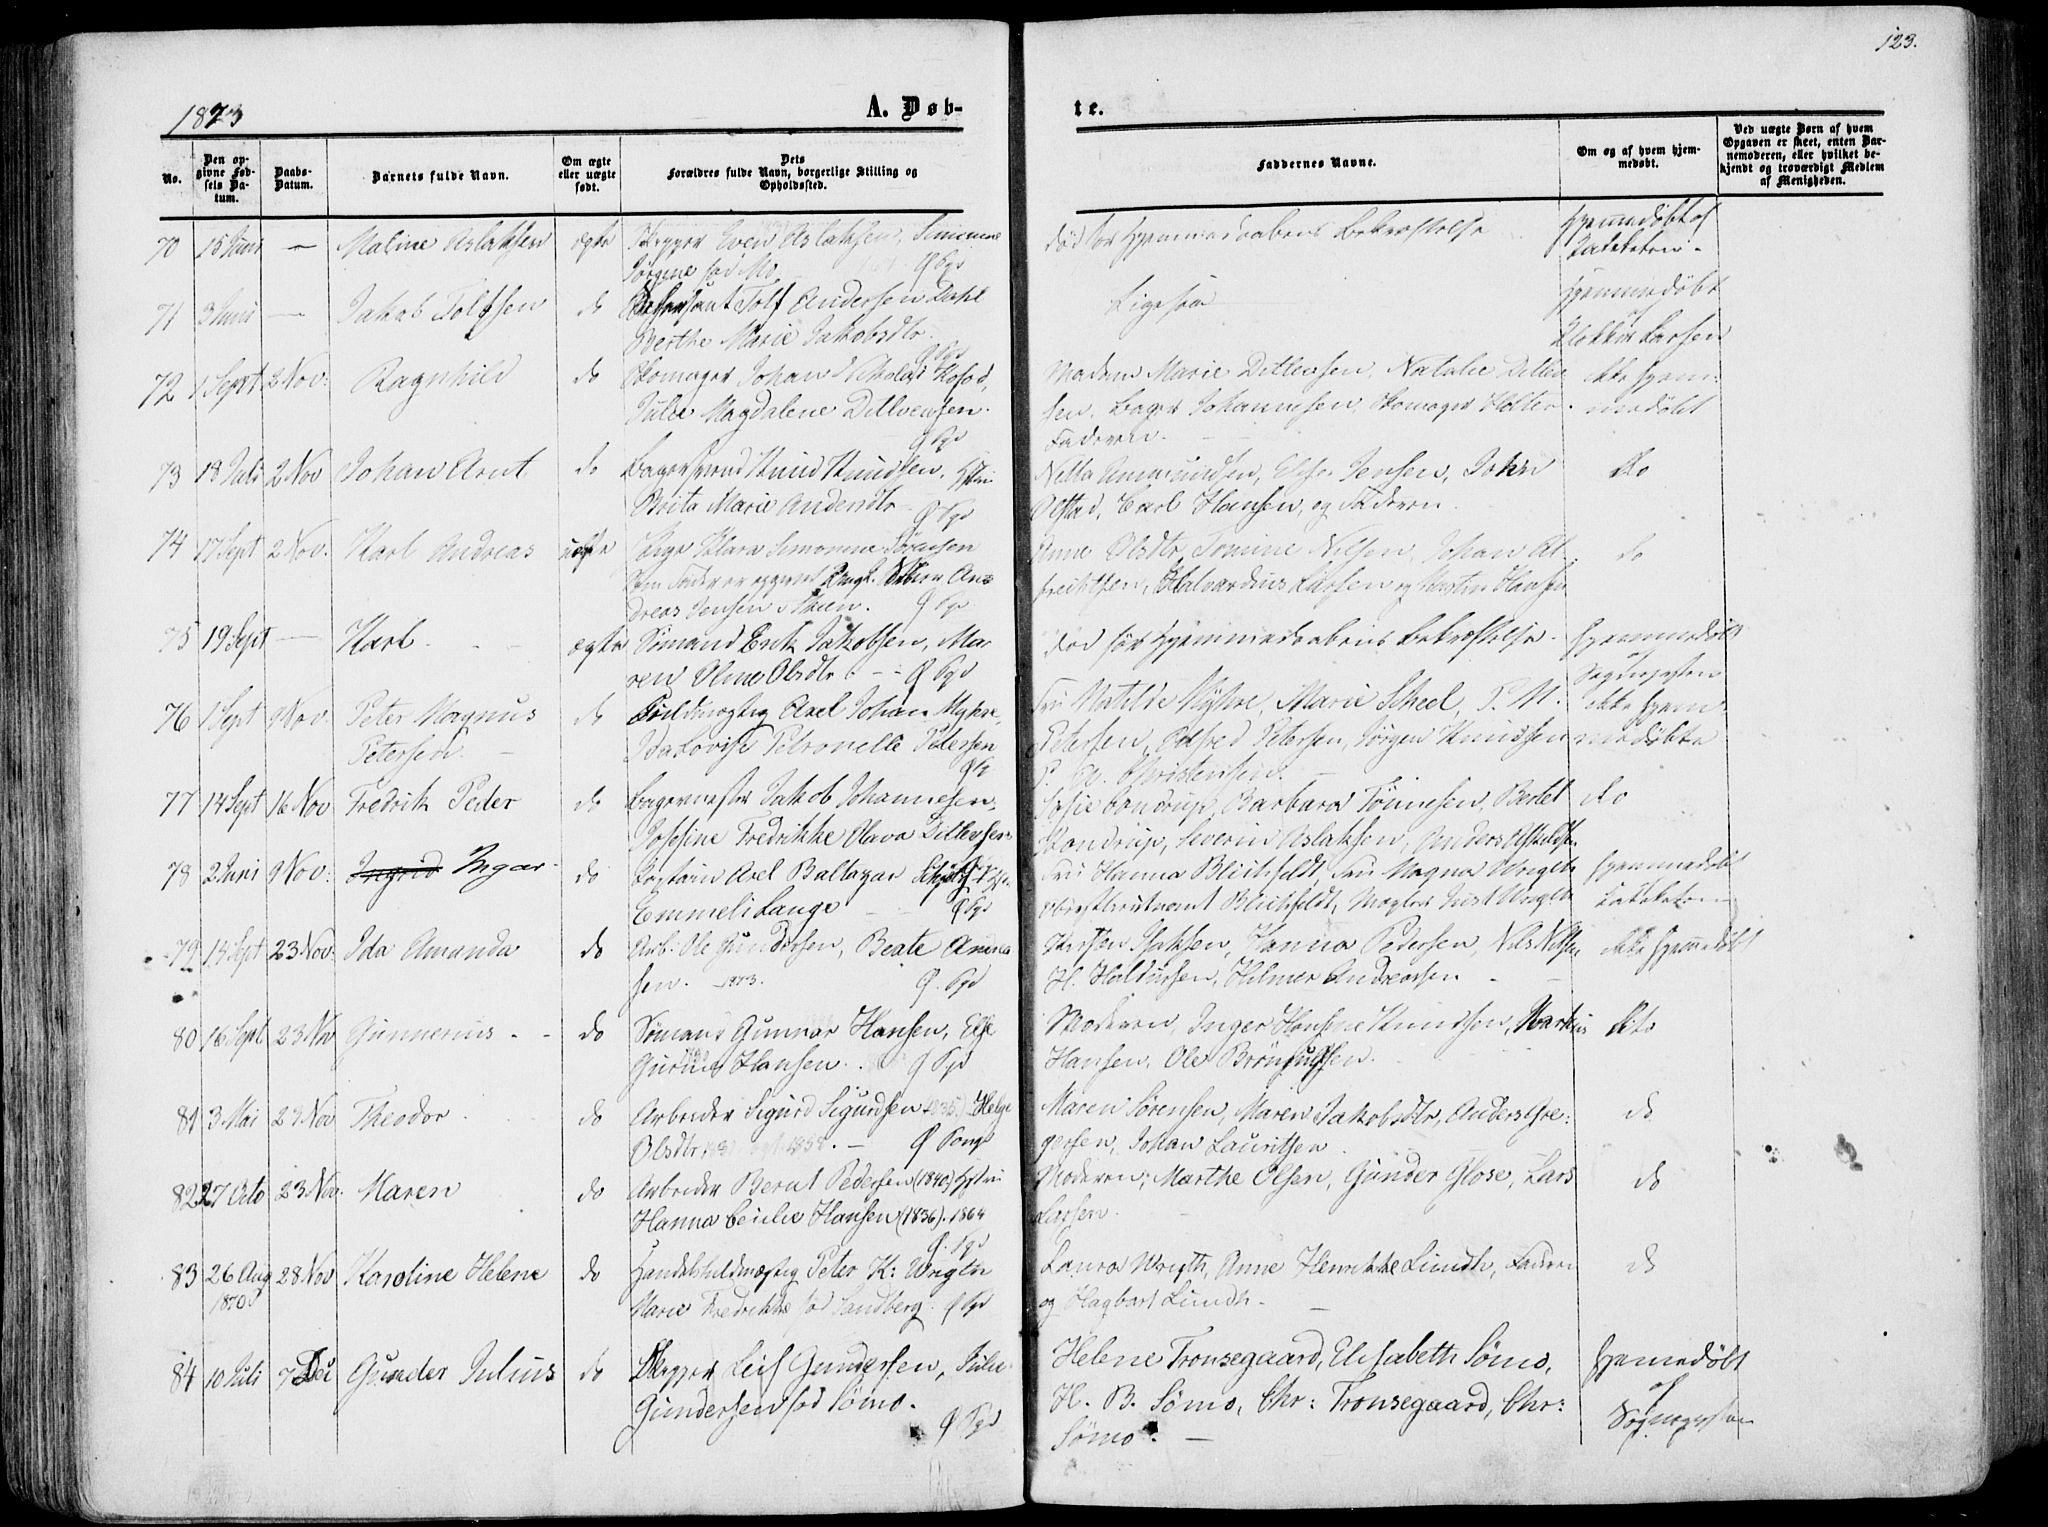 123.
1873
A. Døb-
te.
No.
Den opgivne Fødsels Datum.
Daabs-Datum.
Barnets fulde Navn.
Om ægte eller uægte født.
Dets Forældres fulde Navn, borgerlige Stilling og Opholdssted.
Faddernes Navne.
Om og af hvem hjemmedøbt.
Ved uægte Børn af hvem Opgaven er skeet, enten Barnemoderen, eller hvilket bekjendt og troværdigt Medlem af Menigheden.
70 15 Juni — Maline Aslaksen ægte Skipper Even Aslaksen, Simonine
Jørgine fød Mo
død før Hjemmedaabens Bekræftelse
Hjemmedøbt af
Kateketen.
71 3 Juni — Jakob Tolfsen do Tolf Andersen Dahl
Berthe Marie Jakobsdtr.
Ligesaa
Hjemmedøbt
af
Klokker Larsen
72 1 Sept 2 Nov: Ragnhild do Skomager Johan Nikolai
Julie Magdalene Ditlevsen.
Madam Marie Ditlevsen, Natalie Ditlev
sen, Bager Johannesen, Skomager Holter.
Faderen.
ikke hjem-
medøbt
73 18 Juli 2 Nov Johan Arnt do Bagersvend Knud Knudsen,
Brita Marie Andersdtr
Amundsen, Jensen, John
Olstad, Carl Hansen, og Faderen.
do
74 17 Sept 2 Nov. Karl Andreas uægte Pige Klara Simonine Sørensen
Som Fader er opgivet An
dreas Jensen Skien.
Anne Olsdtr, Tomine Nilsen, Johan Al
fredsen, Halvardius Larsen og Hansen
do
75 19 Sept — Karl ægte Sømand Erik Jakobsen, Ma
ren Oline Olsdtr
død før Hjemmedaabens Bekræftelse.
Hjemmedøbt
Sognepresten
76 1 Sept 9 Nov. Peter Magnus
Petersen do Fuldmægtig Axel Johan Myhre,
Ida Lovise Petronelle Petersen
Fru Matilde Myhre, Marie Scheel, P. M.
Petersen, Petersen, Jørgen Knudsen
P. Christensen.
ikke hjem
medøbte
77 14 Sept 16 Nov Fredrik Peder do Bagermester Jakob Johannesen,
Josefine Fredrikke Olava Ditlevsen
Sofie Barbara Tønnesen, Berte
Severin Aslaksen, Anders
do
78 2 Juni 9 Nov: Ingrid Ingar do Kaptein Axel Baltazar
Emmeli Lange
Fru Hanna Blichfeldt, Fru Magna Wrigth
Oberstlieutnant Blichfeldt, Mægler Just Wrigth
Hjemmedøbt
Kateketen
79 13 Sept 23 Nov: Ida Amanda do Arb: Ole Gundersen, Beate
sen. 1873.
Hanna Pedersen, Nils Nilsen,
H. Haldorsen, Hilmer Andreassen
ikke hjemedøbt
80 16 Sept 23 Nov Gunnerius do Sømand Gunnar Hansen, Else
Hansen.
Moderen, Inger Hansine Knudsen, Markus
Hansen, Ole
do
81 3 Mai 23 Nov Theodor do Arbeider Sigurd Sigurdsen 1835, Helge
Olsdtr 1838.
Maren Sørensen, Maren Jakobsdtr, Anders Gre:
gersen, Johan Lauritsen.
do
82 27 Octo 23 Nov. Maren do Arbeider Bernt Pedersen (1840)
Hanna Cecilie Hansen (1836). 1864
Moderen, Marthe Olsen, Gunder Glose, Lars
Larsen.
do
83 26 Aug
1870 28 Nov Karoline Helene do Handelsfuldmægtig Peter K: Wrigth
Marie Fredrikke fød Sandberg.
Laura Wrigth, Anne Henrikke Lundh, Faderen
og Hagbart Lundh.
do
84 10 Juli 7 Dec Gunder Julius do Skipper Leif Gundersen, Julie
Gundersen fød Sømo.
Helene Tronsegaard, Elisabeth Sømo,
H. B. Sømo, Chr: Tronsegaard, Chr:
Sømo.
Hjemmedøbt
af
Sognepresten